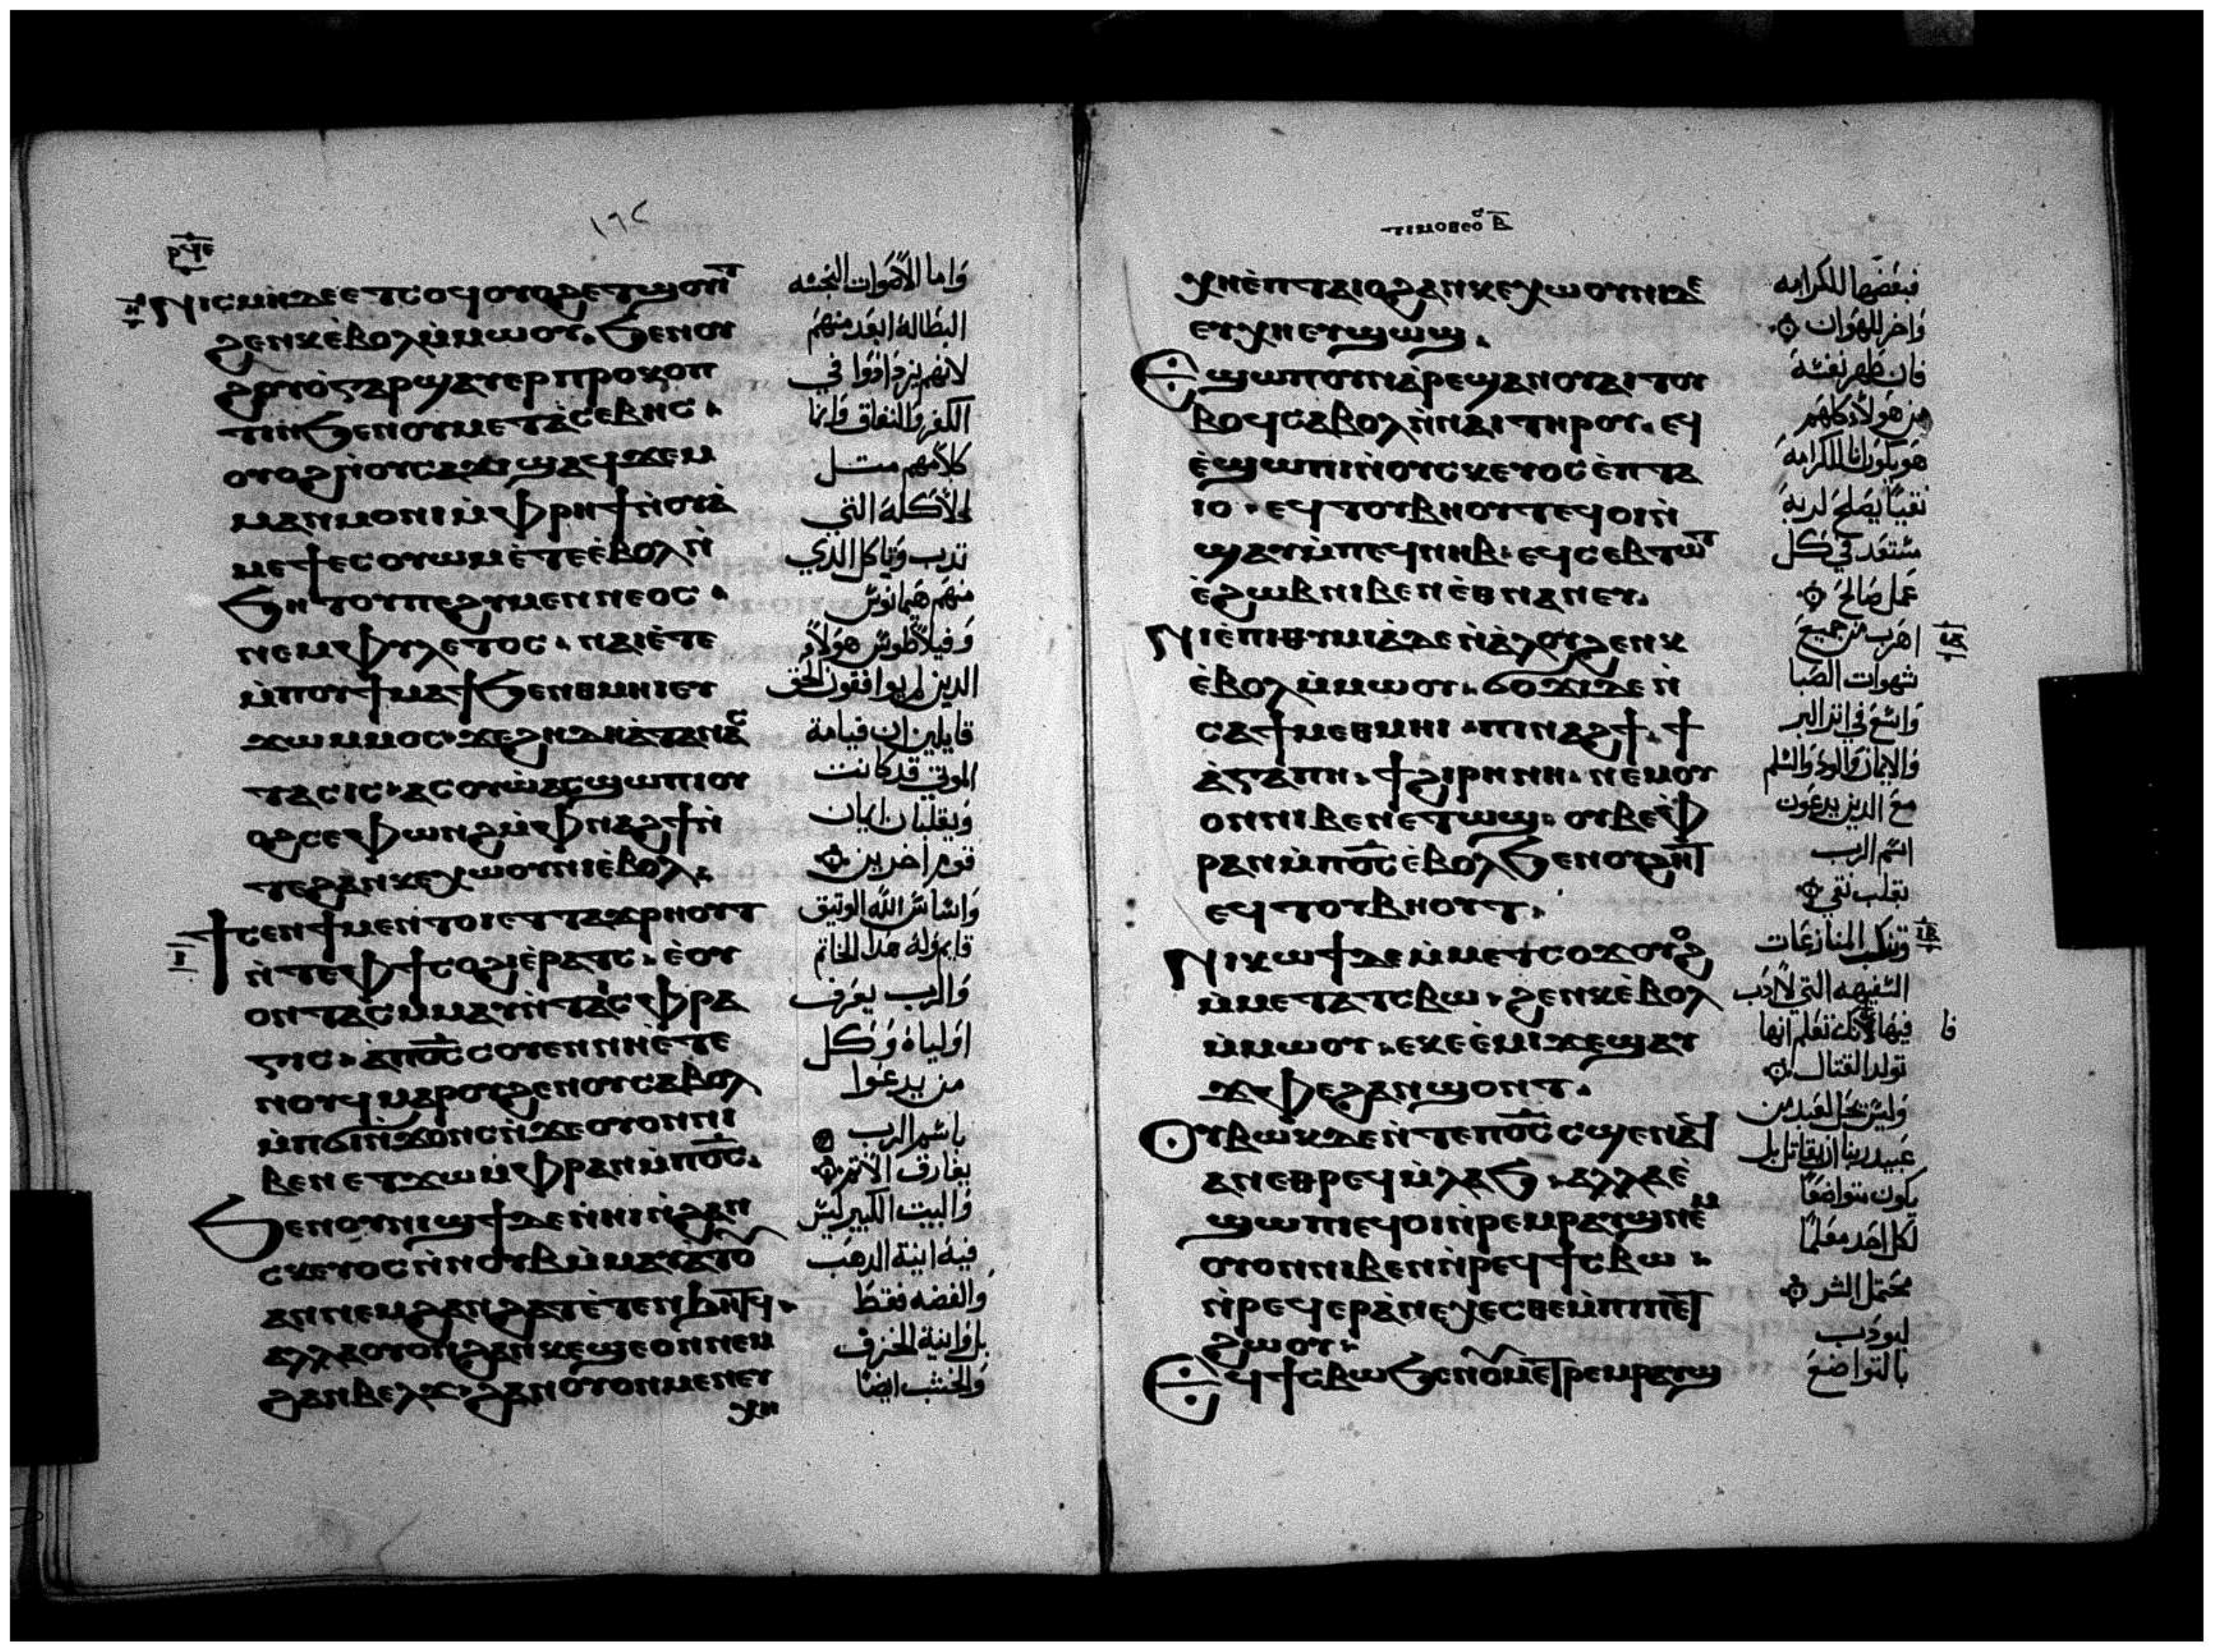 ⲣϥⲉ
١٦٤
ⲛⲓⲥⲙⲏ ⲇⲉ ⲉⲧⲥⲟϥ ⲟⲩⲟϩ ⲉⲧϣⲟⲩⲓⲧ
ϩⲉⲛⲕ ⲉⲃⲟⲗ ⲙ̀ⲙⲱⲟⲩ. ϧⲉⲛ ⲟⲩ
ϩⲟⲩⲟ̀ ⲅⲁⲣ ϣⲁⲩⲉⲣⲡⲣⲟⲕⲟⲡ
ⲧⲓⲛ ϧⲉⲛ ⲟⲩⲙⲉⲧⲁ̀ⲥⲉⲃⲏⲥ.
ⲟⲩⲟϩ ⲡⲟⲩⲥⲁϫⲓ ϣⲁϥϫⲉⲙ
ⲙⲁⲛⲙⲟⲛⲓ ⲙ̀ⲫⲣⲏϯ ⲛ̀ⲟⲩⲁ̀
ⲙⲉϯⲉⲥⲟⲩⲱⲙ ⲉ̀ⲧⲉ ⲉ̀ⲃⲟⲗ ⲛ̀
ϧⲏⲧⲟⲩ ⲡⲉ ϩⲩⲙⲉⲛⲛⲉⲟⲥ.
ⲛⲉⲙ ⲫⲩⲗⲉⲧⲟⲥ. ⲛⲁⲓ ⲉ̀ⲧⲉ
ⲙ̀ⲡⲟⲩϯⲙⲁϯ ϧⲉⲛ ⲑⲙⲏⲓ ⲉⲩ
ϫⲱ ⲙⲙⲟⲥ ϫⲉ ϩⲏⲇⲏ ⲁ̀ⲧⲁⲛⲁⲥ
ⲧⲁⲥⲓⲥ ⲁⲥⲟⲩⲱ ⲁⲥϣⲱⲡⲓ ⲟⲩ
ⲟϩ ⲥⲉⲫⲱⲛϩ ⲙ̀ⲫⲛⲁϩϯ ⲛ̀
ⲧⲉ ϩⲁⲛⲕⲉⲭⲱⲟⲩⲛⲓ ⲉ̀ⲃⲟⲗ.
ϯⲥⲉⲛϯ ⲙⲉⲛⲧⲟⲓ ⲉⲧⲧⲁϫⲣⲏⲟⲩⲧ
ⲛ̀ⲧⲉ ⲫϯ ⲥⲟϩⲓ ⲉ̀ⲣⲁⲧⲥ. ⲉ̀ⲟⲩ
ⲟⲛⲧⲁⲥ ⲙⲙⲁⲩ ⲛ̀ⲧⲁⲓⲥⲫⲣⲁ
ⲅⲓⲥ. ⲁ̀ⲡⲟ̅ⲥ̅ ⲥⲟⲩⲉⲛ ⲛⲏⲉ̀ⲧⲉ
ⲛⲟⲩϥ ⲙⲁⲣⲟⲩϩⲉⲛⲟⲩ ⲥⲁⲃⲟⲗ
ⲙ̀ⲡϭⲓⲛϫⲟⲛⲥ ⲛ̀ϫⲉ ⲟⲩⲟⲛ ⲛⲓ
ⲃⲉⲛ ⲉⲧϫⲱ ⲙ̀ⲫⲣⲁⲛ ⲙ̀ⲡⲟ̅ⲥ̅.
ϧⲉⲛ ⲟⲩⲛⲓϣϯ ⲇⲉ ⲛ̀ⲏⲓ ⲛ̀ϩⲁⲛ
ⲥⲕⲉⲩⲟⲥ ⲛ̀ⲛⲟⲩⲃ ⲙ̀ⲙⲁⲩⲁⲧⲟⲩ
ⲁⲛ ⲛⲉⲙ ϩⲁⲛϩⲁⲧ ⲉ̀ⲧⲉⲛϧⲏⲧϥ.
ⲁⲗⲗⲁ ⲟⲩⲟⲛ ϩⲁⲛⲕⲉϣⲉ ⲟⲛ ⲛⲉⲙ
ϩⲁⲛⲃⲉⲗϫ. ϩⲁⲛⲟⲩⲟⲛ ⲙⲉⲛ ⲉⲩ
ⲭⲏ
وَاما الاصَوات النجسَه
البطاله ابعَد منهم
لانهم يزدَادوَا في
الكفر والنفاق وَانما
كلامهم مثل
الاكله التي
تدب وَتاكل الدي
منهم هيمانوس
وَفيلاطوس هولاءَ
الدين لم يوافقون الحق
قايلين ان قيامة
الموتى قد كانت
وَيقلبان ايمان
قوم اخرين
وَاساس الله الوتيق
قايم وَله هدا الخاتم
وَالرب يعرف
اوَلياه وَكل
من يدعوا
باسم الرب
يفارق الاتم
وَالبيت الكبير ليس
فيه انية الدهب
وَالفضه فقط
بل وَانية الخزف
وَالخشب ايضا
ⲧⲓⲙⲟⲑⲉⲟⲥ ⲃ̅
ⲭⲏ ⲉ̀ⲡⲧⲁⲓⲟ ϩⲁⲛⲕⲉⲭⲱⲟⲩⲛⲓ ⲇⲉ
ⲉⲩⲭⲏ ⲉⲩϣⲱϣ.
ⲉϣⲱⲡ ⲟⲩⲛ ⲁ̀ⲣⲉϣⲁⲛ ⲟⲩⲁⲓ ⲧⲟⲩ
ⲃⲟϥ ⲥⲁⲃⲟⲗ ⲛ̀ⲛⲁⲓ ⲧⲏⲣⲟⲩ. ⲉϥ
ⲉ̀ϣⲱⲡⲓ ⲛ̀ⲟⲩⲥⲕⲉⲩⲟⲥ ⲉ̀ⲡⲧⲁ
ⲓⲟ. ⲉϥⲧⲟⲩⲃⲏⲟⲩⲧ ⲉϥⲟⲓ ⲛ̀
ϣⲁⲩ ⲙ̀ⲡⲉϥⲛⲏⲃ. ⲉϥⲥⲉⲃⲧⲱⲧ
ⲉ̀ϩⲱⲃ ⲛⲓⲃⲉⲛ ⲉ̀ⲑⲛⲁⲛⲉⲩ.
ⲛⲓⲉ̀ⲡⲓⲑⲩⲙⲓⲁ̀ ⲇⲉ ⲛ̀ⲁ̀ⲗⲟⲩ ϩⲉⲛⲕ
ⲉ̀ⲃⲟⲗ ⲙ̀ⲙⲱⲟⲩ. ϭⲟϫⲓ ⲇⲉ ⲛ̀
ⲥⲁ ϯⲙⲉⲑⲙⲏⲓ. ⲡⲓⲛⲁϩϯ. ϯ
ⲁ̀ⲅⲁⲡⲏ. ϯϩⲓⲣⲏⲛⲏ. ⲛⲉⲙ ⲟⲩ
ⲟⲛ ⲛⲓⲃⲉⲛ ⲉⲧⲱϣ ⲟⲩⲃⲉ ⲫ
ⲣⲁⲛ ⲙ̀ⲡⲟ̅ⲥ̅ ⲉ̀ⲃⲟⲗ ϧⲉⲛ ⲟⲩϩⲏⲧ
ⲉϥⲧⲟⲩⲃⲏⲟⲩⲧ.
ⲛⲓⲕⲱϯ ⲇⲉ ⲙ̀ⲙⲉⲧⲥⲟϫ ⲟⲩⲟϩ
ⲙ̀ⲙⲉⲧⲁⲧⲥⲃⲱ. ϩⲉⲛⲕ ⲉ̀ⲃⲟⲗ
ⲙ̀ⲙⲱⲟⲩ. ⲉⲕⲉ̀ⲉ̀ⲙⲓ ϫⲉ ϣⲁⲩ
ϫⲫⲉ ϩⲁⲛϣⲟⲛⲧ.
ⲟⲩⲃⲱⲕ ⲇⲉ ⲛ̀ⲧⲉ ⲡⲟ̅ⲥ̅ ⲥϣⲉ ⲛⲁϥ
ⲁⲛ ⲉⲑⲣⲉϥⲙ̀ⲗⲁϧ. ⲁⲗⲗⲁ ⲉ̀
ϣⲱⲡⲓ ⲉϥⲟⲓ ⲛ̀ⲣⲉⲙⲣⲁⲩϣ ⲛⲉⲙ
ⲟⲩⲟⲛ ⲛⲓⲃⲉⲛ ⲛ̀ⲣⲉϥϯⲥⲃⲱ.
ⲛ̀ⲣⲉϥⲉⲣⲁ̀ⲛⲉⲭⲉⲥⲑⲉ ⲙ̀ⲡⲓⲡⲉⲧ
ϩⲱⲟⲩ.
ⲉϥϯⲥⲃⲱ ϧⲉⲛ ⲟⲩⲙⲉⲧⲣⲉⲙⲣⲁⲩϣ
فبعَضها للكرامه
وَاخر للهوَان
فان طهر نفسَه
من هَولاء كلهم
هو يكون انا للكرامه
نقيا يصَلح لربه
مستعَد في كل
عَمل صَالح
اهرَب من جميعَ
شهوات الصَبا
وَاسعَ في اتر البر
وَالايمان وَالود وَالسلم
معَ الدين يدعَون
اسم الرب
بقلب نقي
وَتنكب المنازعَات
السَفيهه التي لا ادَب
فيها لانك تعَلم انها
تولد القتال
وَليس يحَل لعَبد من
عَبيد ربنا ان يقاتل بل
يكون متواضعَا
لكل احَد معَلما
محَتمل الشر
ليودَب
بالتواضعَ